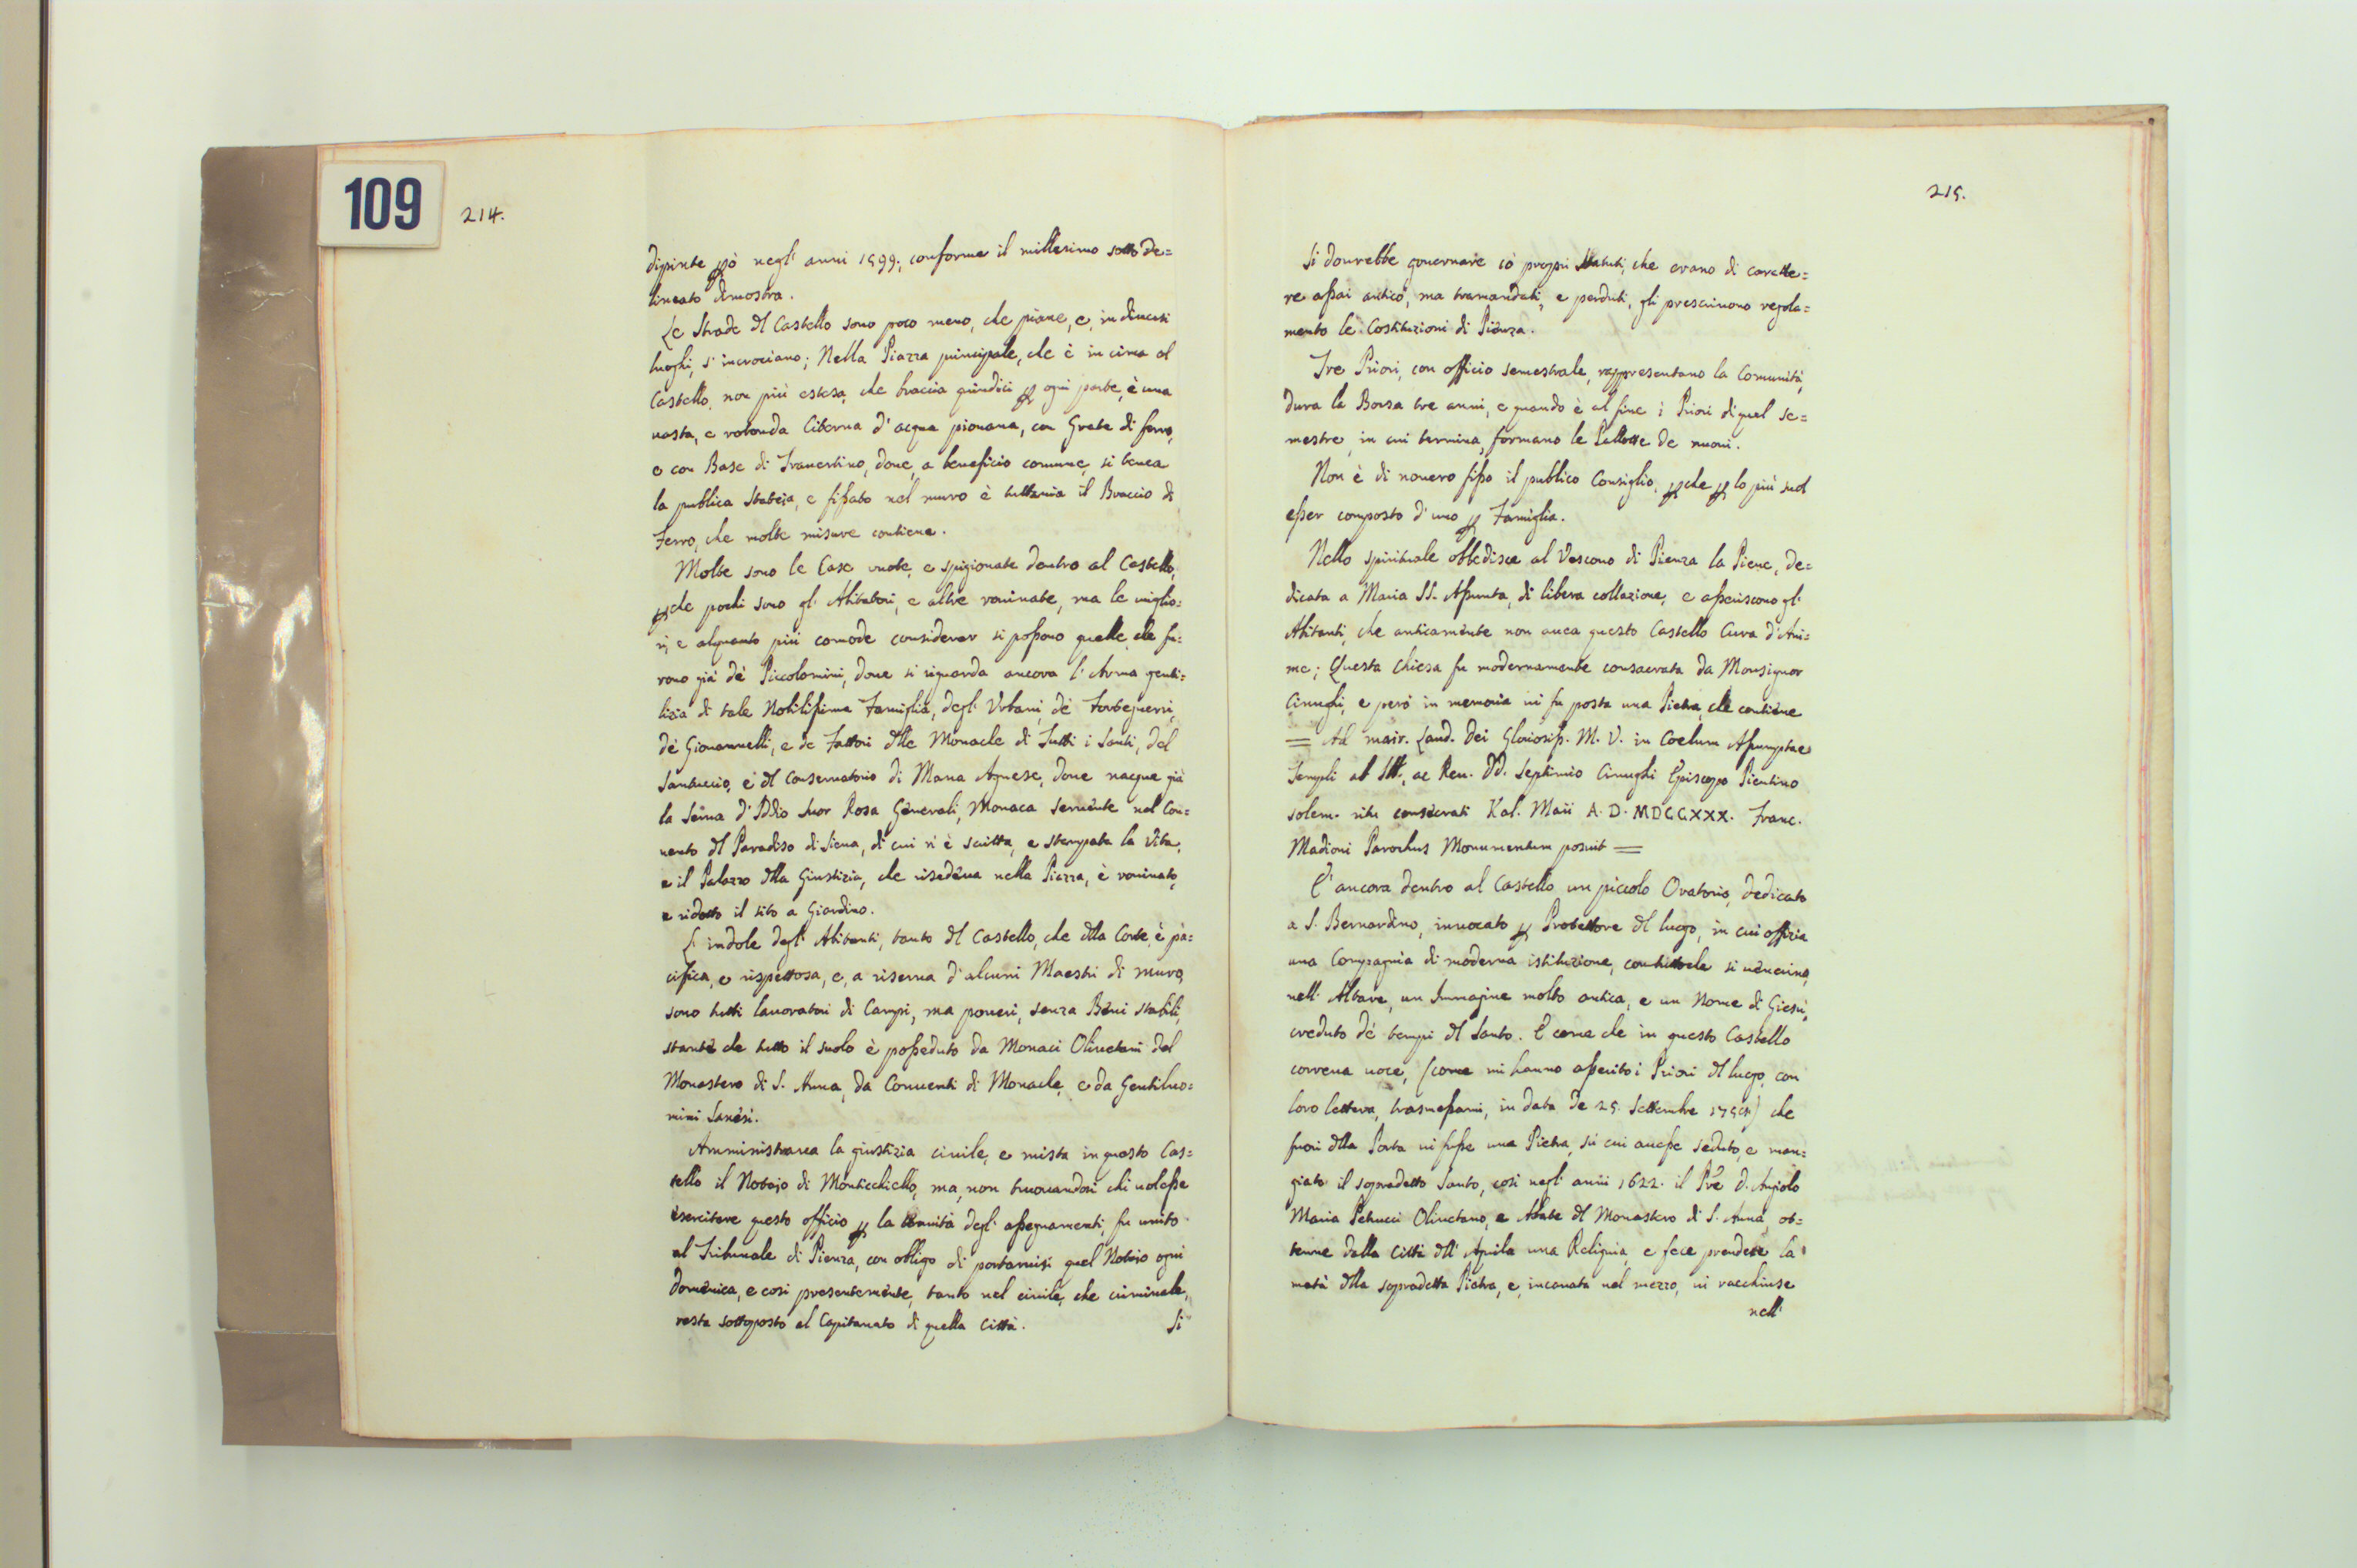 109
214.
dipinte però negl' anni 1599; conforme il millesimo sotto de=
lineato dimostra.
Le Strade del Castello sono poco meno, che piane, e, in diversi
luoghi, s' incrociano; Nella Piazza principale, che è in cima al
Castello, non più estesa, che braccia quindici per ogni parte, è una
vasta, e rotonda Citerna d' acqua piovana, con Grate di ferro,
e con Base di Travertino, dove, a beneficio comune, si tenea
la publica Stateia, e fissato nel muro è tuttavia il Braccio di
Ferro, che molte misure contiene.
Molte sono le Case vuote, e spigionate dentro al Castello,
perche pochi sono gl' Abitatori, e altre rovinate, ma le miglio=
ri, e alquanto più comode considerar si possono quelle, che fu=
rono già de' Piccolomini, dove si riguarda ancora l' Arma genti=
lizia di tale Nobilissima Famiglia, degl' Urbani, de' Forteguerri,
de' Giovannelli, e de Fattori delle Monache di Tutti i Santi, del
Santuccio, e del Conservatorio di Maria Agnese, dove nacque già
la Serva d' Iddio Suor Rosa Generali, Monaca servente nel Con=
vento del Paradiso di Siena, di cui si è scritta, e stampata la Vita,
e il Palazzo della Giustizia, che risedeva nella Piazza, è rovinato,
e ridotto il sito a Giardino.
L' indole degl' Abitanti, tanto del Castello, che della Corte, è pa=
cifica, e rispettosa, e, a riserva d' alcuni Maestri di muro,
sono tutti lavoratori di Campi, ma poveri, senza Beni stabili,
stante che tutto il suolo è posseduto da Monaci Olivetani del
Monastero di S. Anna, da Conventi di Monache, e da Gentiluo=
mini Sanesi.
Amministrava la giustizia civile, e mista in questo Cas=
tello il Notajo di Monticchiello, ma, non trovandosi chi volesse
esercitare questo officio per la tenuità degl' assegnamenti, fu unito
al Tribunale di Pienza, con obligo di portarvisi quel Notaio ogni
domenica, e così presentemente, tanto nel civile, che criminale,
resta sottoposto al Capitanato di quella Città.
Si
215.
Si dovrebbe governare cò proprij Statuti, che erano di caratte=
re assai antico, ma tramandati, e perduti, gli prescrivono regola=
mento le Costituzioni di Pienza.
Tre Priori, con officio semestrale, rappresentano la Comunità,
dura la Borsa tre anni, e quando è al fine i Priori di quel se=
mestre, in cui termina, formano le Pallotte de nuovi.
Non è di novero fisso il publico Consiglio, perche per lo più suol
esser composto d' uno per Famiglia.
Nello spirituale obbedisce al Vescovo di Pienza la Pieve, de=
dicata a Maria SS. Assunta, di libera collazione, e asseriscono gl'
Abitanti, che anticamente non avea questo Castello Cura d' Ani=
me; Questa Chiesa fu modernamente consacrata da Monsignor
Cinughi, e però in memoria vi fu posta una Pietra, che contiene
= Ad maior. Laud. Dei Gloriosiss. M. V. in Coelum Assumptae
Templi ab Ill., ac Rev. DD. Septimio Cinughi Episcopo Pientino
solem. ritu consecrati Kal. Maii A. D. MDCCXXX. Franc.
Madioni Parochus Monumentum posuit =
E' ancora dentro al Castello un piccolo Oratorio, dedicato
a S. Bernardino, invocato per Protettore del luogo, in cui offizia
una Compagnia di moderna istituzione, contuttoche si venerino,
nell' Altare, un Immagine molto antica, e un Nome di Giesù,
creduto de' tempi del Santo. E come che in questo Castello
correva voce, (come mi hanno asserito i Priori del luogo, con
loro lettera, trasmessami, in data de 25. Settembre ) che
fuori della Porta vi fusse una Pietra, sù cui avesse seduto, e man=
giato il sopradetto Santo, così negl' anni 1622. il Pre D. Angiolo
Maria Petrucci Olivetano, e Abate del Monastero di S. Anna, ot=
tenne dalla Città dell' Aquila una Reliquia, e fece prendere la
metà della sopradetta Pietra, e, incavata nel mezzo, vi racchiuse
nell'